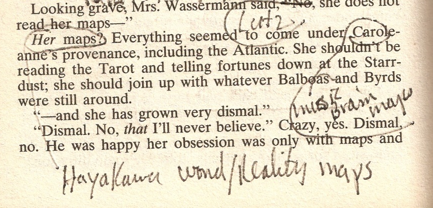 Looking grave, Mrs. Wassermann said, "No, she does not
read her maps—"
Her maps? Everything seemed to come under Carole-
anne's provenance, including the Atlantic. She shouldn't be
reading the Tarot and telling fortunes down at the Starr-
dust; she should join up with whatever Balboas and Byrds
were still around.
"—and she has grown very dismal."
Brain maps
"Dismal. No, that I'll never believe." Crazy, yes. Dismal,
no. He was happy her obsession was only with maps and
Hayakawa word/Reality maps